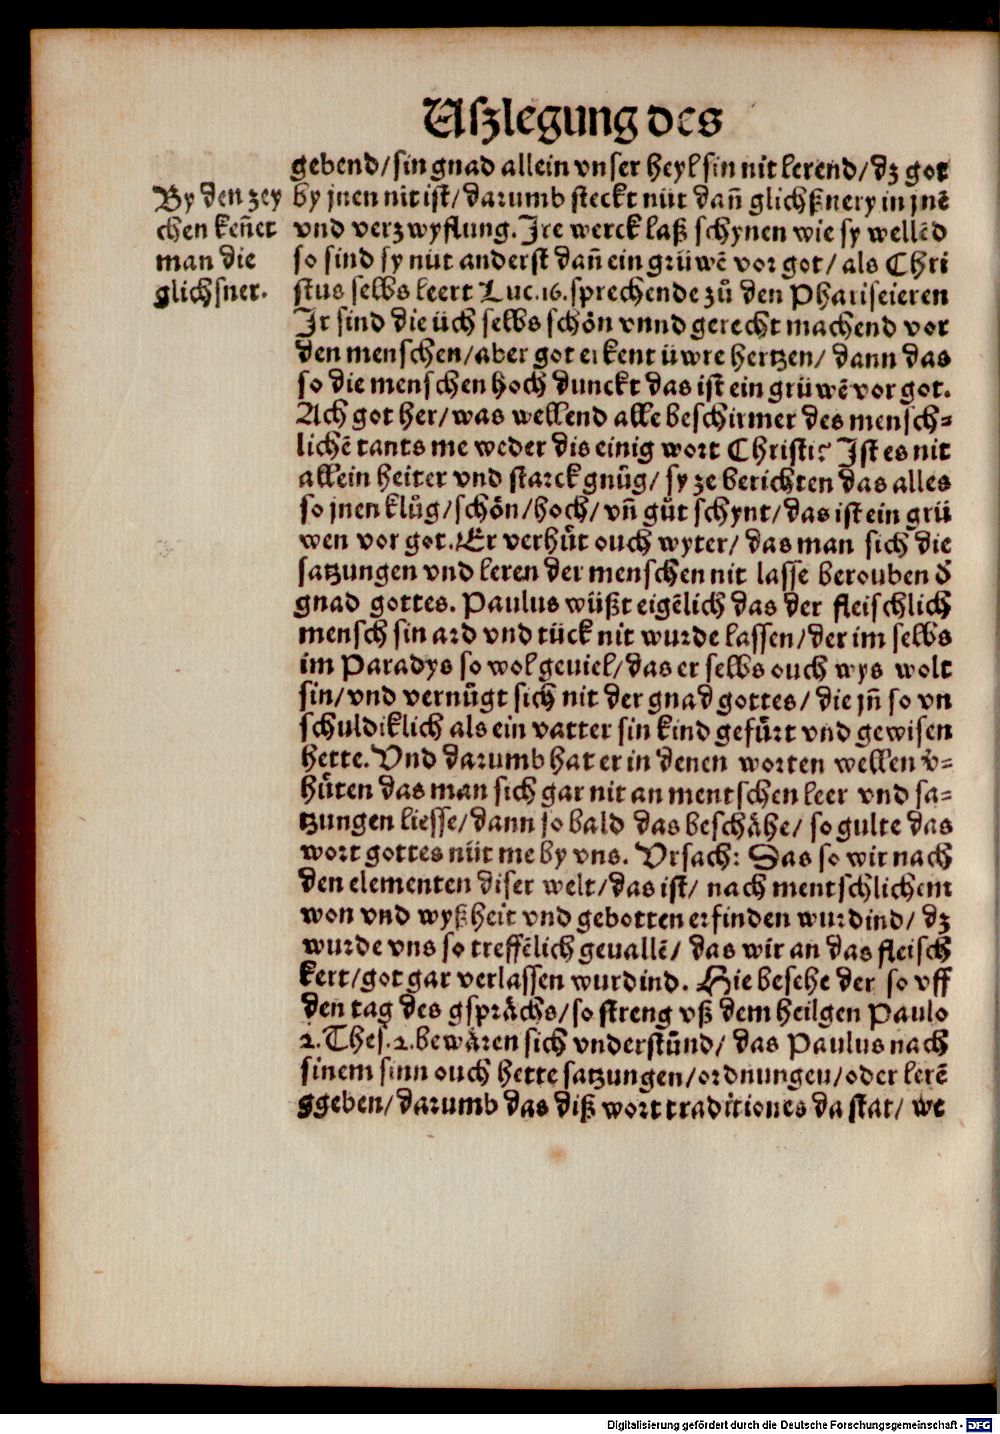 Uſzlegung des
gebend/ sin gnad allein vnser heyl sin nit lerend/ dz got
by jnen nit ist/ darumb steckt nüt dañ glichßnery in jnē
vnd verzwyflung. Ire werck laß schynen wie sy wellēd
so sind sy nüt anderst dañ ein grüwē vor got/ als Chri
stus selbs leert Luc. 16. sprechende zů den Phariseieren
Ir sind die üch selbs schön vnnd gerecht machend vor
den menschen/ aber got erkent üwre hertzen/ dann das
so die menschen hoch dunckt das ist ein grüwē vor got.
Ach got her/ was wellend alle beschirmer des mensch⸗
lichē tants me weder dis einig wort Christi? Ist es nit
allein heiter vnd starck gnůg/ sy ze berichten das alles
so jnen klůg/ schön/ hoch/ vñ gůt schynt/ das ist ein grü
wen vor got. Er verhůt ouch wyter/ das man sich die
satzungen vnd leren der menschen nit lasse berouben d̕
gnad gottes. Paulus wüßt eigēlich das der fleischlich
mensch sin ard vnd tück nit wurde lassen/ der im selbs
im Paradys so wol geuiel/ das er selbs ouch wys wolt
sin/ vnd vernůgt sich nit der gnad gottes/ die jñ so vn
schuldiklich als ein vatter sin kind gefůrt vnd gewisen
hette. Vnd darumb hat er in denen worten wellen v̕⸗
hůten das man sich gar nit an mentschen leer vnd sa⸗
tzungen liesse/ dann so bald das beschähe/ so gulte das
wort gottes nüt me by vns. Vrsach: Das so wir nach
den elementen diser welt/ das ist/ nach mentschlichem
won vnd wyßheit vnd gebotten erfinden wurdind/ dz
wurde vns so treffēlich geuallē/ das wir an das fleisch
kert/ got gar verlassen wurdind. Hie besehe der so vff
den tag des gsprächs/ so streng vß dem heilgen Paulo
2. Thes. 2. bewären sich vnderstůnd/ das Paulus nach
sinem sinn ouch hette satzungen/ ordnungen/ oder lerē
ggeben/ darumb das diß wort traditiones da stat/ we
By den zey
chen keñet
man die
glichsner.
Digitalisierung gefördert durch die Deutsche Forschungsgemeinschaft - DFG